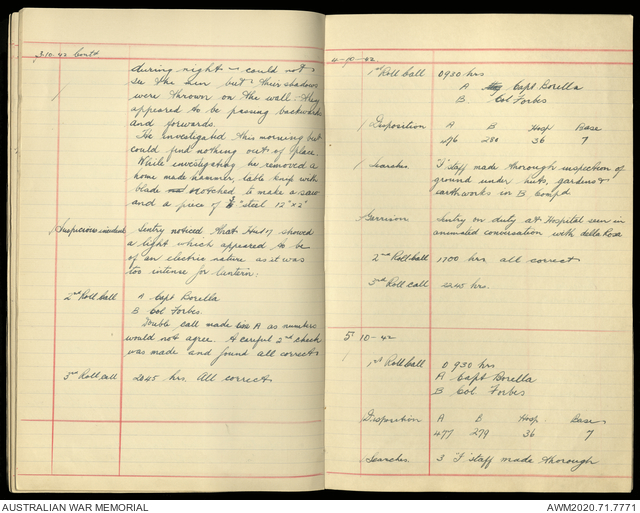 3.10.42 Contd
during night – could not
see the men but their shadows
were thrown on the wall. They
appeared to be passing backwards
and forwards.
He investigated this morning but
could find nothing out of place.
While investigating he removed a
home made hammer, table knife with
blade notched to make a saw
and a piece of ½" steel 12" x 2"
Suspicious incident Sentry noticed that Hut 17 showed
a light which appeared to be
of an electric nature as it was
too intense for lantern.
2nd Roll Call A Capt Borella
B Col Forbes.
Double call made in A as numbers
would not agree. A careful 2nd check
was made and found all correct
3rd Roll call 2045 hrs. All correct
4-10-42
1st Roll Call 0930 hrs
A Capt Borella
B. Col Forbes
Disposition A B Hosp Base
476 280 36 7
Searches 'I' staff made thorough inspection of
ground under huts, gardens &
earthworks in B Comp'd
Garrison Sentry on duty at Hospital seen in
animated conversation with della Rosa
2nd Roll Call 1700 hrs all correct
3rd Roll call hrs.
5 10-42
1st Roll Call 0930 hrs
A Capt Borella
B Col Forbes
Disposition A B Hosp Base
477 279 36 7
Searches 3 'I' staff made thorough
AUSTRALIAN WAR MEMORIAL
AWM2020.71.7771